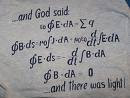 ...and God said:
ε₀∮E·dA = Σq
∮B·ds = μ₀∫J·dA + μ₀ε₀ d/dt∫E·dA
∮E·ds = - d/dt∫B·dA
∮B·dA = 0
...and there was light!